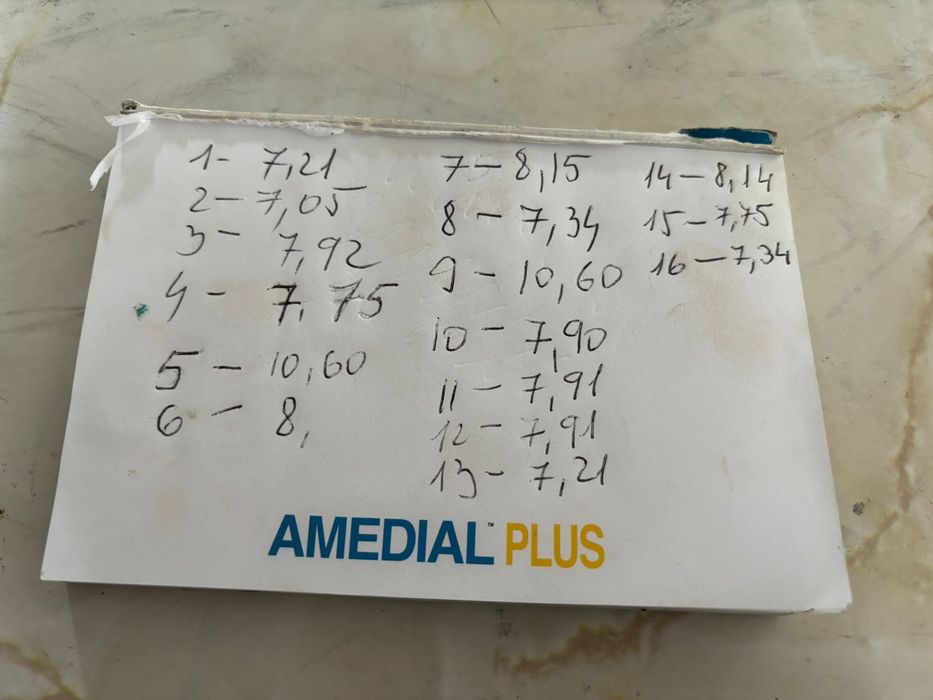 1- 7,21
2- 7,05
3- 7,92
4- 7,75
5- 10,60
6- 8,
7- 8,15
8- 7,34
9- 10,60
10- 7,90
11- 7,91
12- 7,91
13- 7,21
14- 8,14
15- 7,75
16- 7,34
AMEDIAL™ PLUS